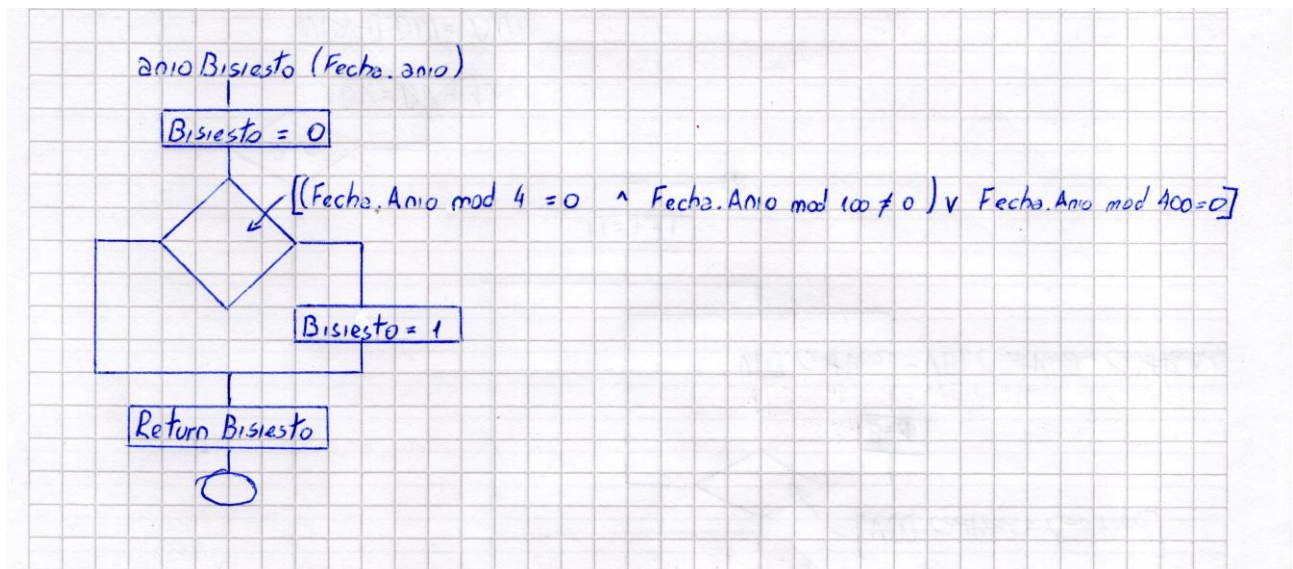 anio Bisiesto (Fecha.anio)
Bisiesto = 0
[(Fecha.Anio mod 4 = 0 ^ Fecha.Anio mod 100 ≠ 0) v Fecha.Anio mod 400=0]
Bisiesto = 1
Return Bisiesto